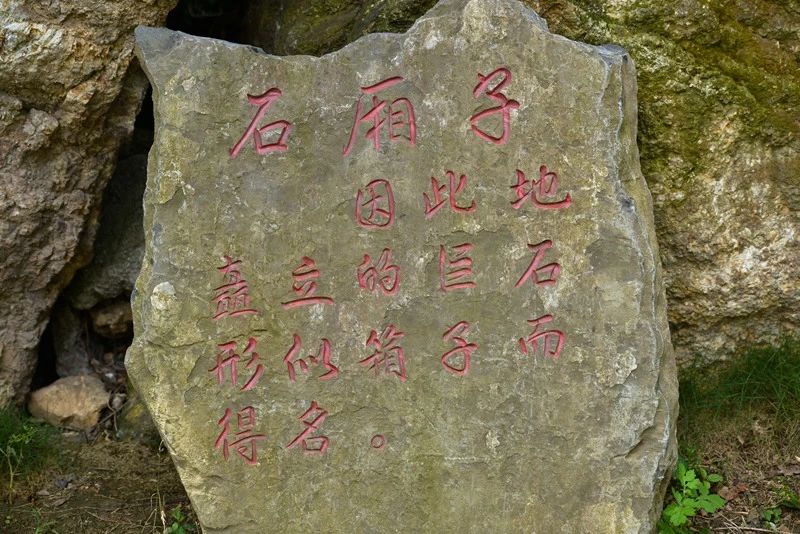 石厢子
因此地
矗立的巨石
形似箱子而
得名。